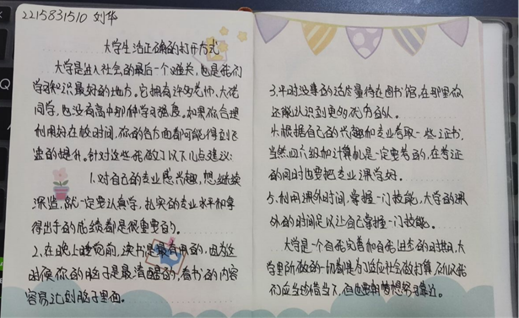 2215831510 刘华
大学生活正确的打开方式
大学是进入社会的最后一个难关,也是我们
学习知识最好的地方。它拥有许多老师、大佬
同学,也没有高中那种学习强度,如果你合理
利用好在校时间,你的各方面都可能得到
的提升。针对这些我做了以下几点建议:
1.对自己的专业感兴趣,想继续
深造,就一定要认真学,扎实的专业水平和拿
得出手的成绩都是很重要的。
2.在晚上睡觉前,读书是最有用的,因为这
时候你的脑子是最清醒的,看书的内容
容易记到脑子里面。
3.平时没事的话尽量待在图书馆,在那里你
还能认识到更多优秀的人。
4.根据自己的兴趣和专业考取一些证书,
当然四六级和计算机是一定要考的,在考证
的同时也要把专业课学好。
5.利用课外时间,掌握一门技能,大学的课
外的时间足以让自己掌握一门技能。
大学是一个自我沉着和自我进步的时期,大
学里所做的一切都是为了适应社会做打算,所以我
们应当珍惜当下,自己要朝梦想努力靠近。